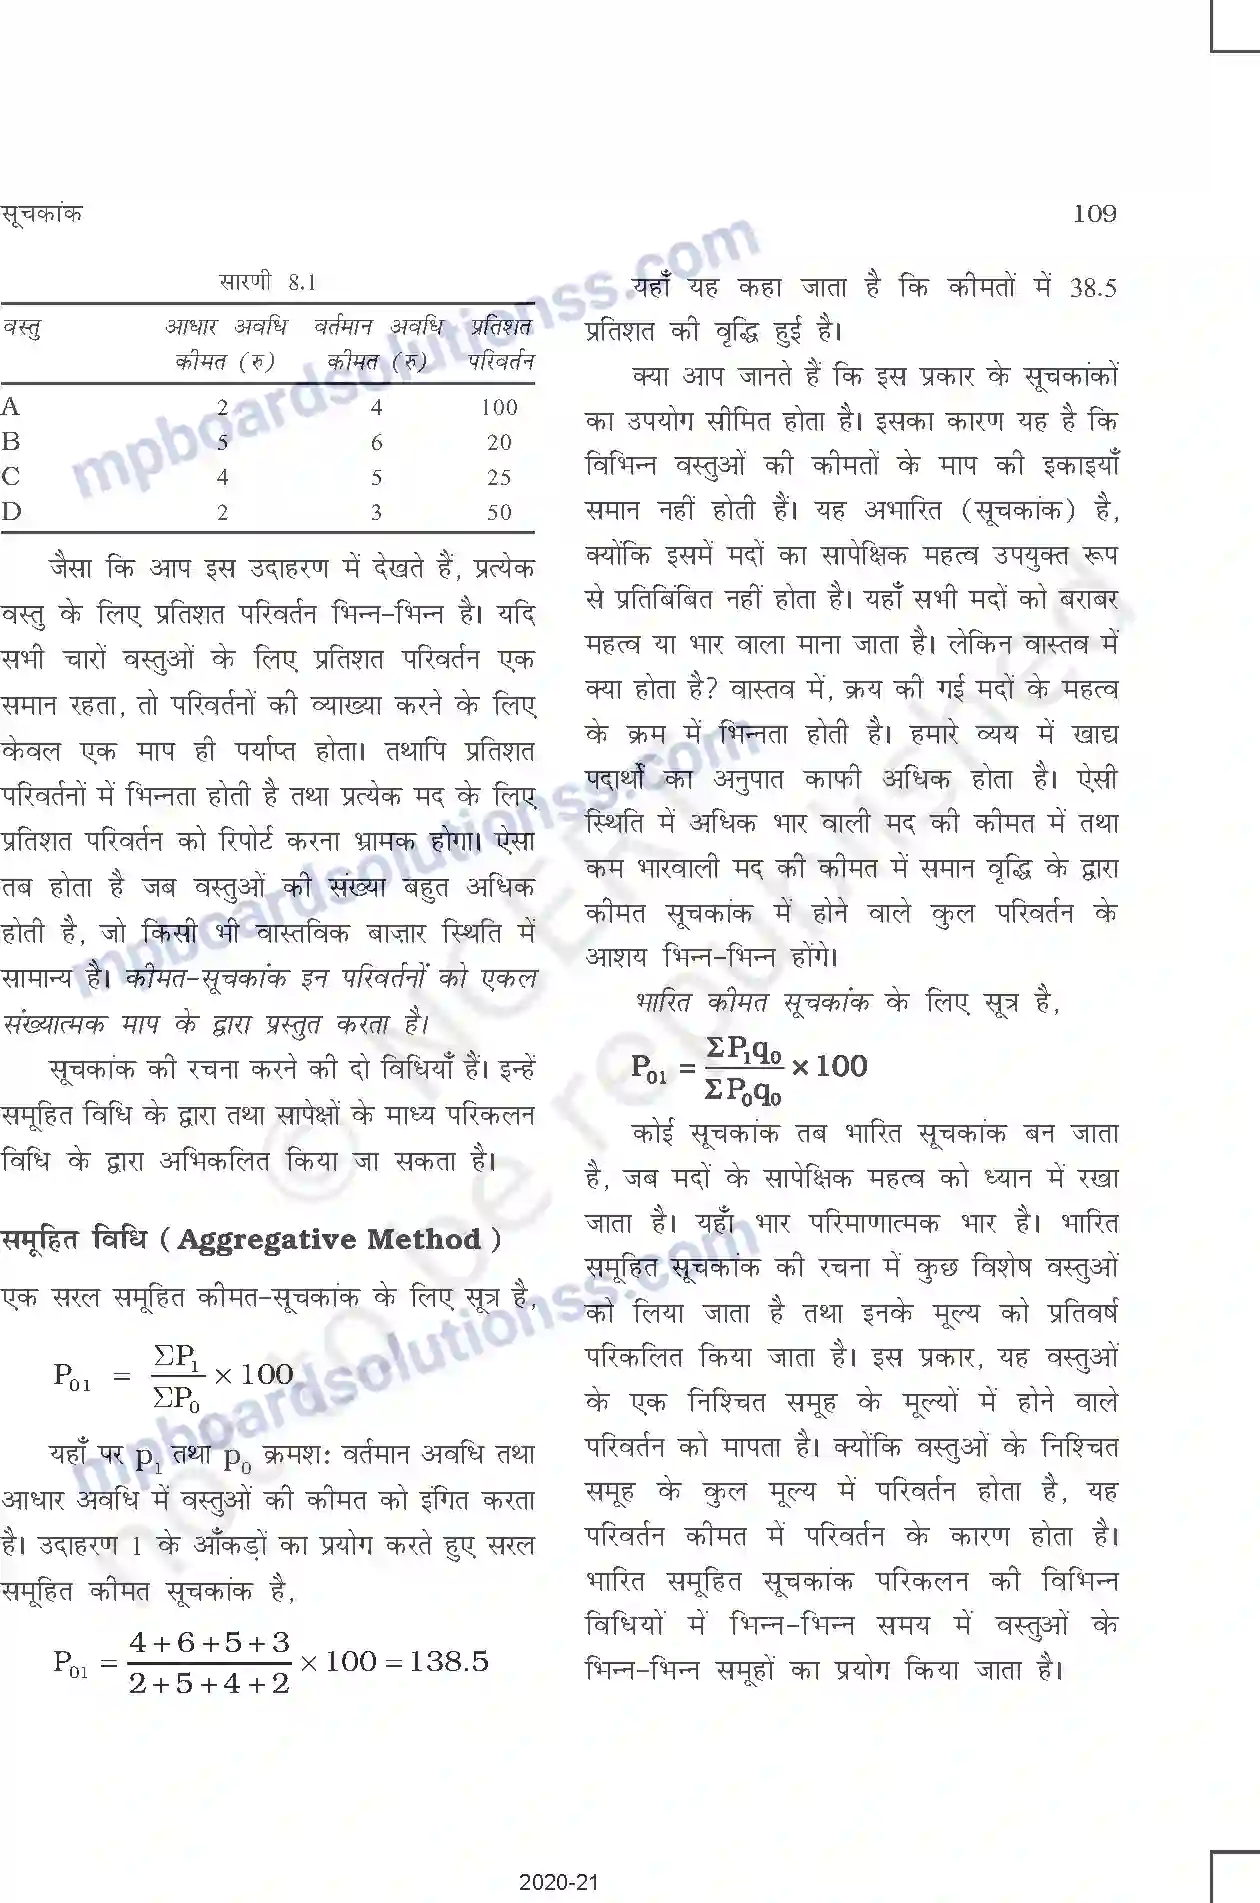 सूचकांक 109
सारणी 8.1
वस्तु आधार अवधि वर्तमान अवधि प्रतिशत
कीमत (रु) कीमत (रु) परिवर्तन
A 2 4 100
B 5 6 20
C 4 5 25
D 2 3 50
जैसा कि आप इस उदाहरण में देखते हैं, प्रत्येक
वस्तु के लिए प्रतिशत परिवर्तन भिन्न-भिन्न है। यदि
सभी चारों वस्तुओं के लिए प्रतिशत परिवर्तन एक
समान रहता, तो परिवर्तनों की व्याख्या करने के लिए
केवल एक माप ही पर्याप्त होता। तथापि प्रतिशत
परिवर्तनों में भिन्नता होती है तथा प्रत्येक मद के लिए
प्रतिशत परिवर्तन को रिपोर्ट करना भ्रामक होगा। ऐसा
तब होता है जब वस्तुओं की संख्या बहुत अधिक
होती है, जो किसी भी वास्तविक बाज़ार स्थिति में
सामान्य है। कीमत-सूचकांक इन परिवर्तनों को एकल
संख्यात्मक माप के द्वारा प्रस्तुत करता है।
सूचकांक की रचना करने की दो विधियाँ हैं। इन्हें
समूहित विधि के द्वारा तथा सापेक्षों के माध्य परिकलन
विधि के द्वारा अभिकलित किया जा सकता है।
समूहित विधि ( Aggregative Method )
एक सरल समूहित कीमत-सूचकांक के लिए सूत्र है,
P₀₁ = ΣP₁ / ΣP₀ × 100
यहाँ पर p₁ तथा p₀ क्रमश: वर्तमान अवधि तथा
आधार अवधि में वस्तुओं की कीमत को इंगित करता
है। उदाहरण 1 के आँकड़ों का प्रयोग करते हुए सरल
समूहित कीमत सूचकांक है,
P₀₁ = 4+6+5+3 / 2+5+4+2 × 100 = 138.5
यहाँ यह कहा जाता है कि कीमतों में 38.5
प्रतिशत की वृद्धि हुई है।
क्या आप जानते हैं कि इस प्रकार के सूचकांकों
का उपयोग सीमित होता है। इसका कारण यह है कि
विभिन्न वस्तुओं की कीमतों के माप की इकाइयाँ
समान नहीं होती हैं। यह अभारित (सूचकांक) है,
क्योंकि इसमें मदों का सापेक्षिक महत्व उपयुक्त रूप
से प्रतिबिंबित नहीं होता है। यहाँ सभी मदों को बराबर
महत्व या भार वाला माना जाता है। लेकिन वास्तव में
क्या होता है? वास्तव में, क्रय की गई मदों के महत्व
के क्रम में भिन्नता होती है। हमारे व्यय में खाद्य
पदार्थों का अनुपात काफी अधिक होता है। ऐसी
स्थिति में अधिक भार वाली मद की कीमत में तथा
कम भारवाली मद की कीमत में समान वृद्धि के द्वारा
कीमत सूचकांक में होने वाले कुल परिवर्तन के
आशय भिन्न-भिन्न होंगे।
भारित कीमत सूचकांक के लिए सूत्र है,
P₀₁ = ΣP₁q₀ / ΣP₀q₀ × 100
कोई सूचकांक तब भारित सूचकांक बन जाता
है, जब मदों के सापेक्षिक महत्व को ध्यान में रखा
जाता है। यहाँ भार परिमाणात्मक भार है। भारित
समूहित सूचकांक की रचना में कुछ विशेष वस्तुओं
को लिया जाता है तथा इनके मूल्य को प्रतिवर्ष
परिकलित किया जाता है। इस प्रकार, यह वस्तुओं
के एक निश्चित समूह के मूल्यों में होने वाले
परिवर्तन को मापता है। क्योंकि वस्तुओं के निश्चित
समूह के कुल मूल्य में परिवर्तन होता है, यह
परिवर्तन कीमत में परिवर्तन के कारण होता है।
भारित समूहित सूचकांक परिकलन की विभिन्न
विधियों में भिन्न-भिन्न समय में वस्तुओं के
भिन्न-भिन्न समूहों का प्रयोग किया जाता है।
mpboardsolutionss.com
mpboardsolutionss.com
mpboardsolutionss.com
© NCERT
not to be republished
2020-21